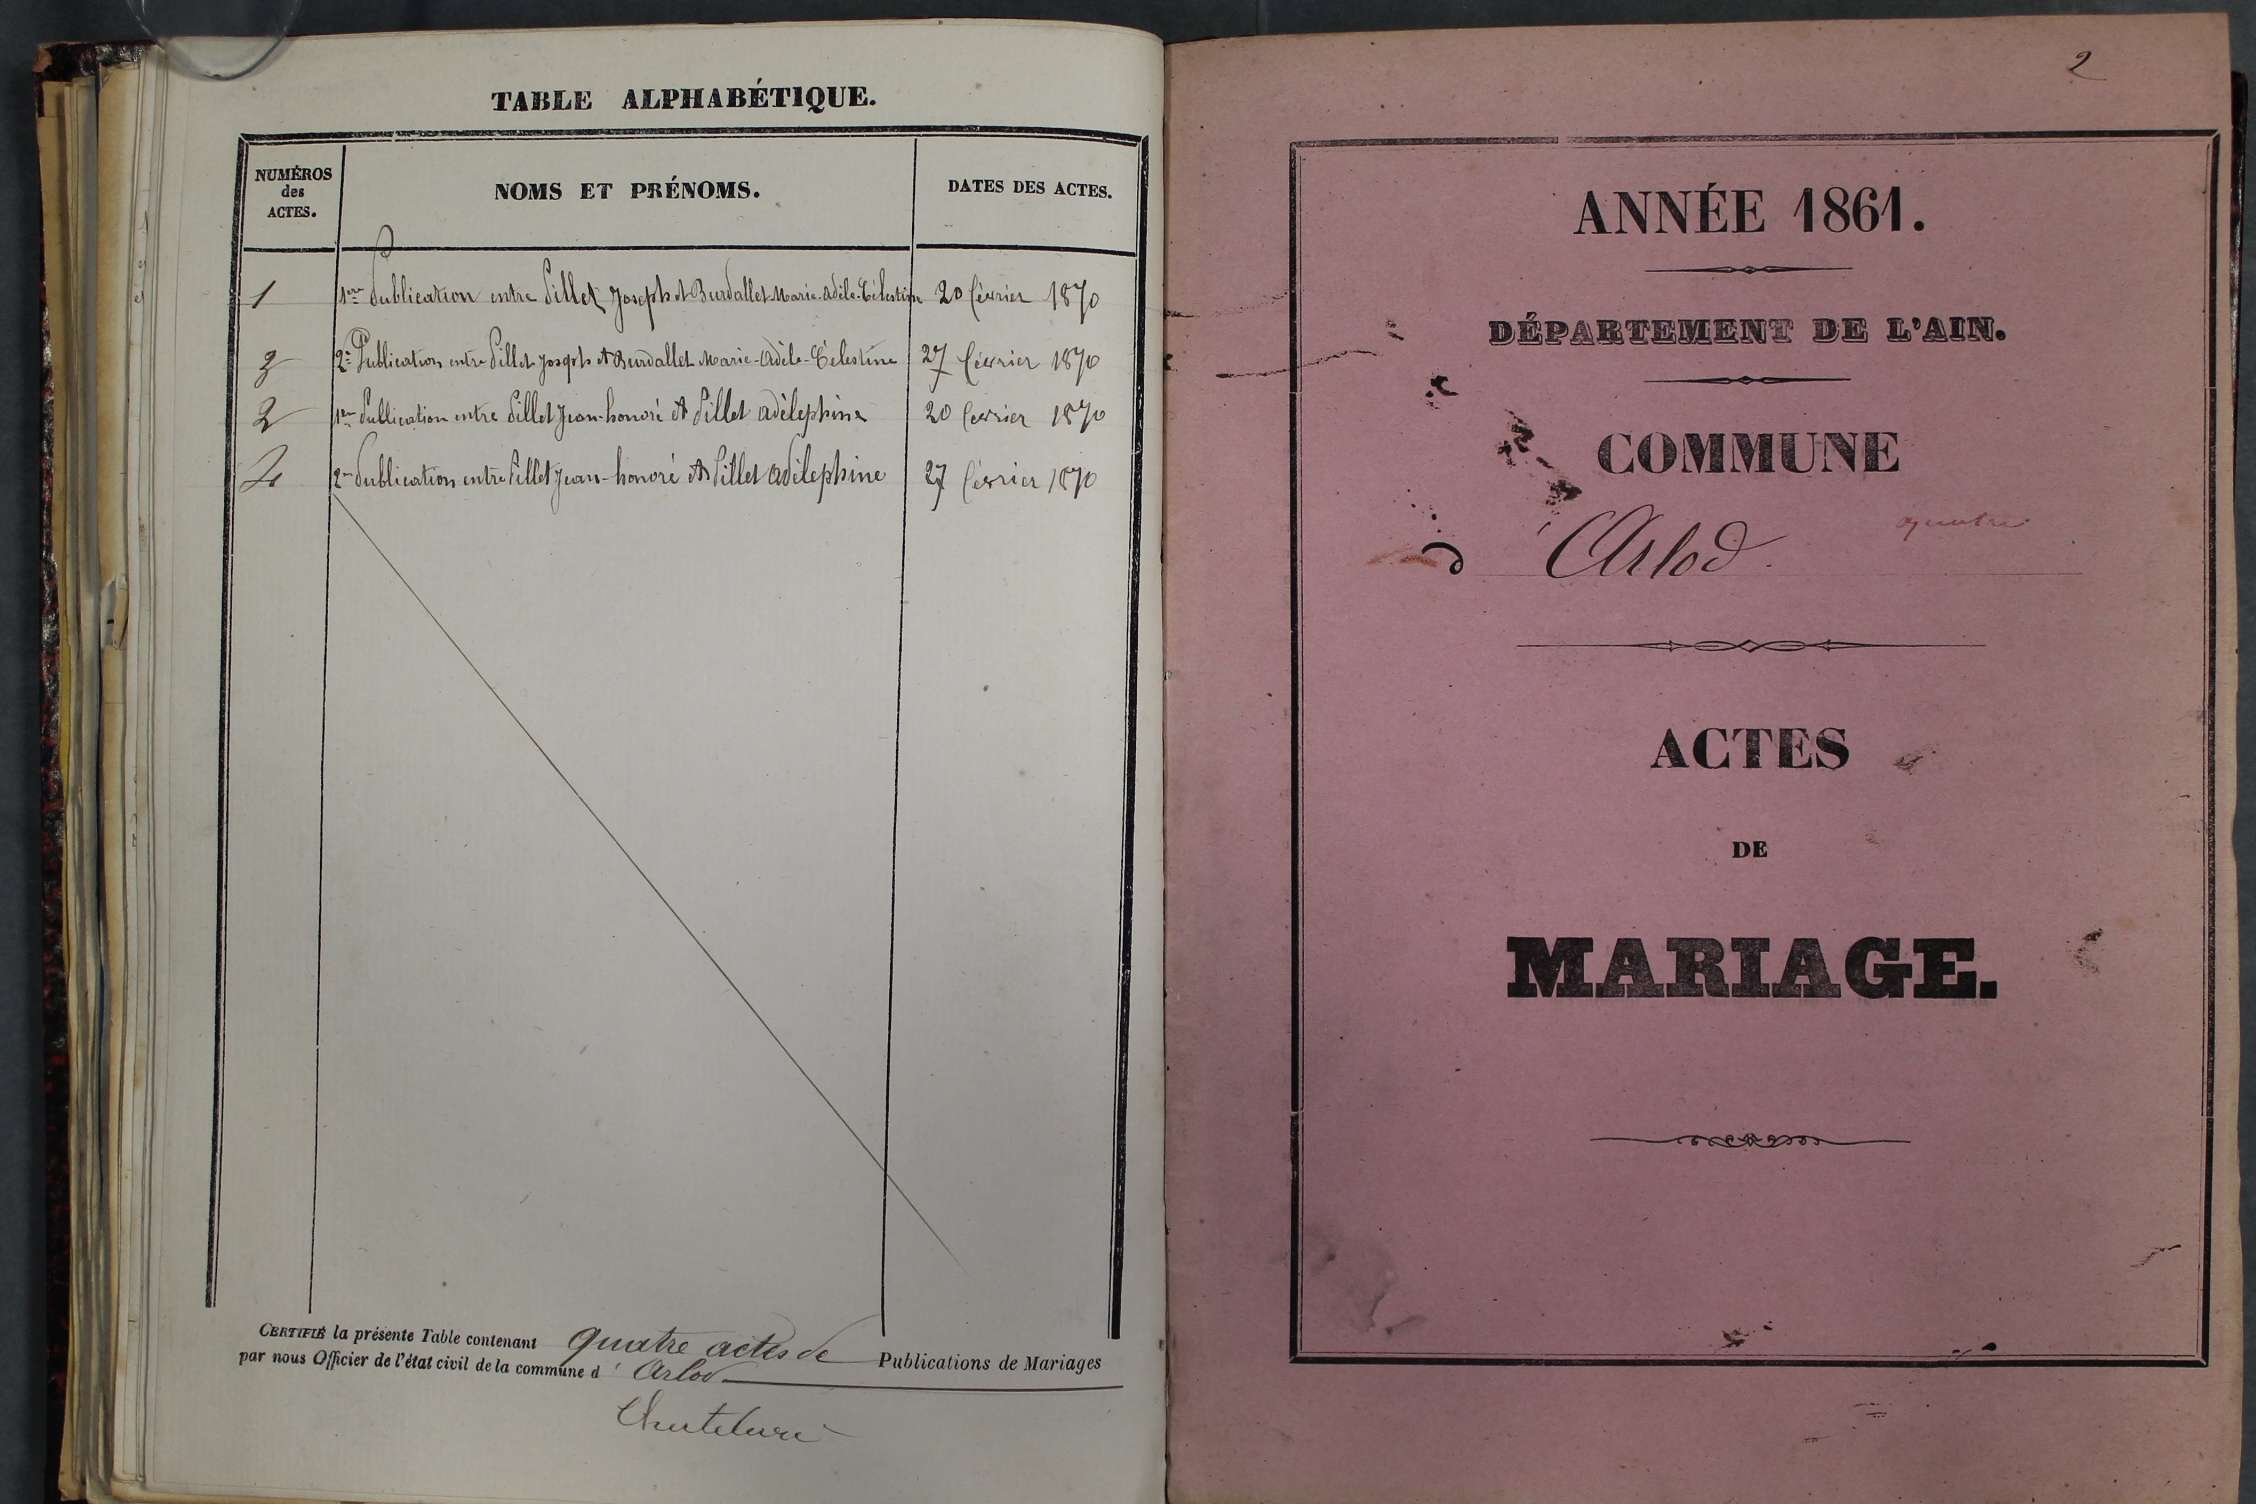 TABLE ALPHABÉTIQUE.
NUMÉROS des ACTES. NOMS ET PRÉNOMS. DATES DES ACTES.
1 1ère Publication entre Pillet Joseph et Burdallet Marie-Adèle-Célestine 20 février 1870
3 2e Publication entre Pillet Joseph et Burdallet Marie-Adèle-Célestine 27 février 1870
2 1ère Publication entre Pillet Jean-honoré et Pillet adèlephine 20 février 1870
4 2me Publication entre Pillet Jean-honoré et Pillet adélephine 27 février 1870
CERTIFIÉ la présente Table contenant quatre actes de Publications de Mariages
par nous Officier de l'état civil de la commune d'Arlod
2
ANNÉE 1861.
DÉPARTEMENT DE L'AIN.
COMMUNE
d'Arlod. quatre
ACTES
DE
MARIAGE.